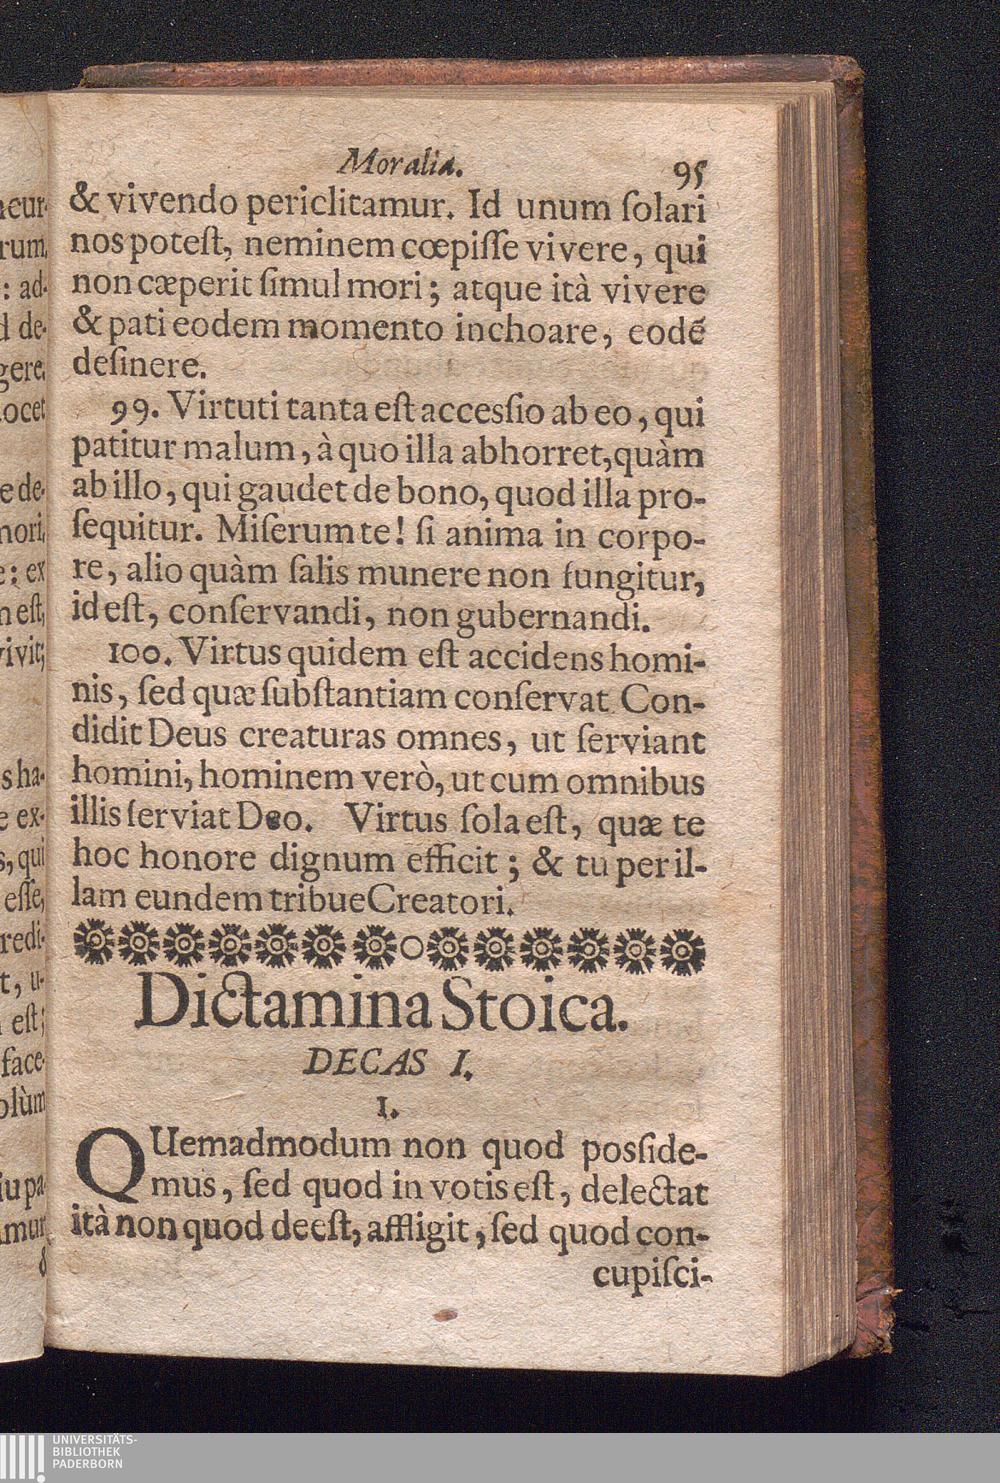 Moralia. 95
& vivendo periclitamur. Id unum ſolari
nos poteſt, neminem cœpiſſe vivere, qui
non cæperit ſimul mori; atque ità vivere
& pati eodem momento inchoare, eodẽ
deſinere.
99. Virtuti tanta eſt acceſſio ab eo, qui
patitur malum, à quo illa abhorret, quàm
ab illo, qui gaudet de bono, quod illa pro-
ſequitur. Miſerum te! ſi anima in corpo-
re, alio quàm ſalis munere non fungitur,
id eſt, conſervandi, non gubernandi.
100. Virtus quidem eſt accidens homi-
nis, ſed quæ ſubſtantiam conſervat Con-
didit Deus creaturas omnes, ut ſerviant
homini, hominem verò, ut cum omnibus
illis ſerviat Deo. Virtus ſola eſt, quæ te
hoc honore dignum efficit; & tu per il-
lam eundem tribue Creatori.
Dictamina Stoica.
DECAS I.
1.
QUemadmodum non quod posſide-
mus, ſed quod in votis eſt, delectat
ità non quod deeſt, affligit, ſed quod con-
cupiſci-
neur-
rum,
: ad-
d de-
gere,
ocet
e de-
mori,
e: ex
n eſt,
vivit;
s ha-
e ex-
s, qui
eſſe,
redi-
t, u-
eſt;
face-
olùm
iu pa-
mur
&
UNIVERSITÄTS-
BIBLIOTHEK
PADERBORN